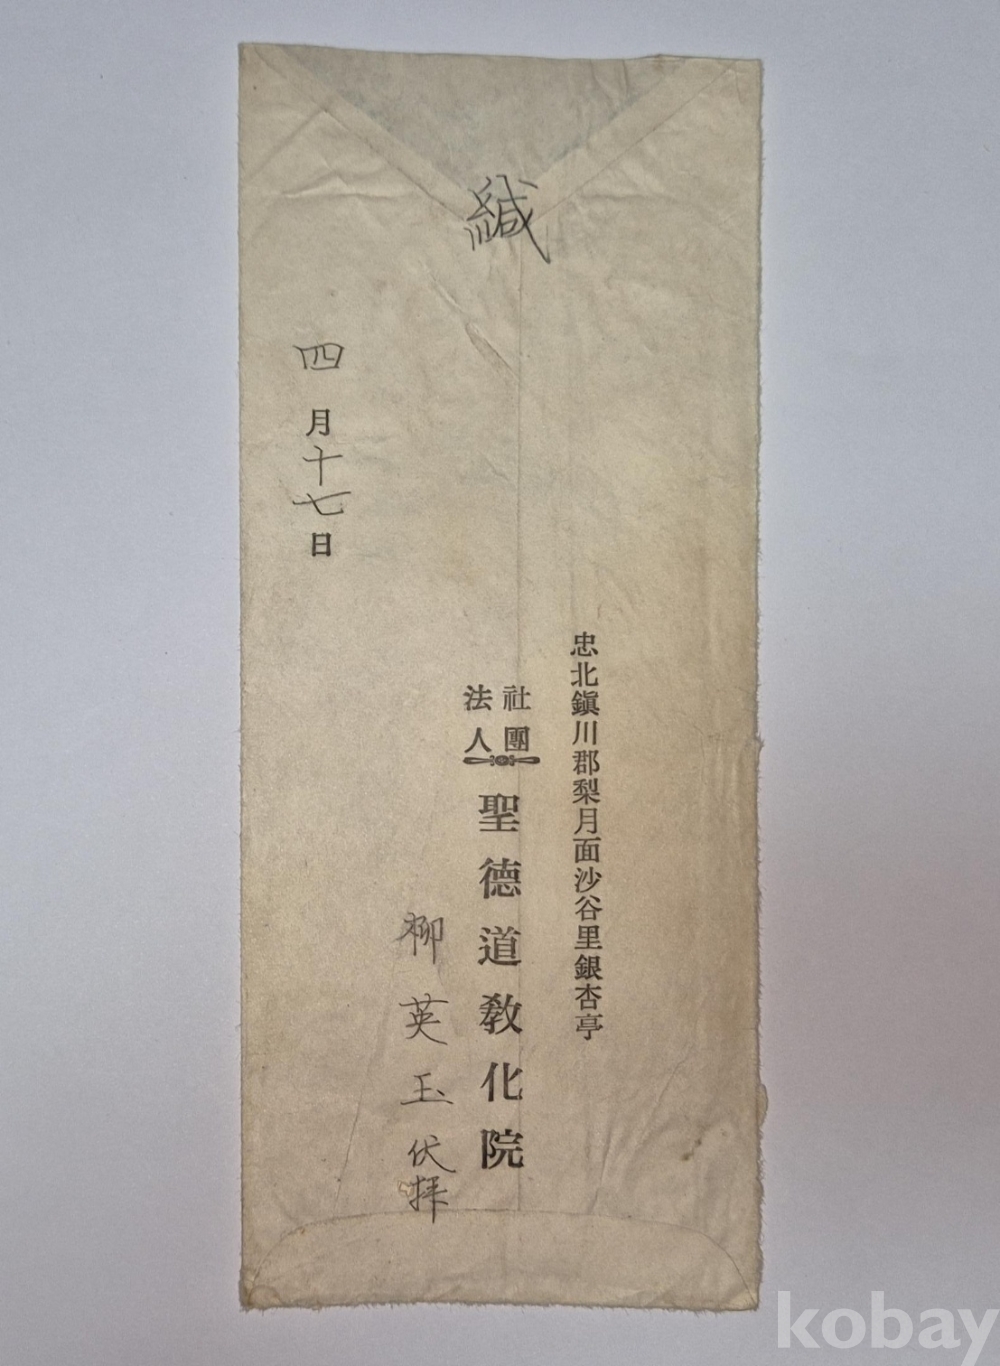 緘
忠北鎭川郡梨月面沙谷里銀杏亭
社團
法人
聖德道敎化院
柳英玉伏拜
四月十七日
kobay